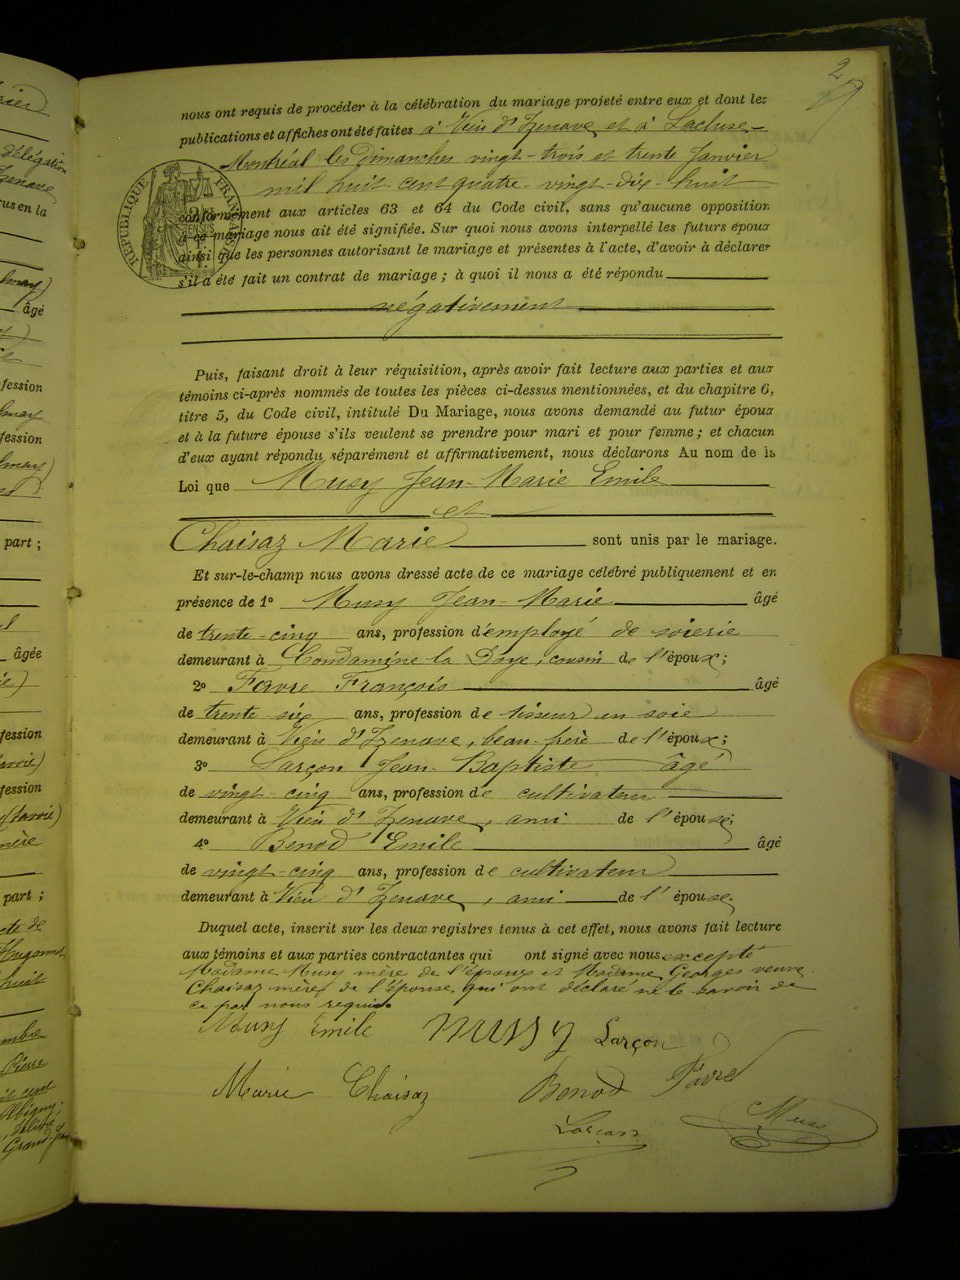 2
nous ont requis de procéder à la célébration du mariage projeté entre eux et dont les
publications et affiches ont été faites à Vieu d'Izenave et à Lacluse-
Montréal les Dimanches vingt-trois et trente Janvier
mil huit cent quatre-vingt-dix-huit
conformément aux articles 63 et 64 du Code civil, sans qu'aucune opposition
à ce mariage nous ait été signifiée. Sur quoi nous avons interpellé les futurs époux
ainsi que les personnes autorisant le mariage et présentes à l'acte, d'avoir à déclarer
s'il a été fait un contrat de mariage ; à quoi il nous a été répondu
négativement
RÉPUBLIQUE FRANÇAISE
Puis, faisant droit à leur réquisition, après avoir fait lecture aux parties et aux
témoins ci-après nommés de toutes les pièces ci-dessus mentionnées, et du chapitre 6,
titre 5, du Code civil, intitulé Du Mariage, nous avons demandé au futur époux
et à la future épouse s'ils veulent se prendre pour mari et pour femme ; et chacun
d'eux ayant répondu séparément et affirmativement, nous déclarons Au nom de la
Loi que Musy Jean-Marie Emile
et
Chaisaz Marie sont unis par le mariage.
Et sur-le-champ nous avons dressé acte de ce mariage célébré publiquement et en
présence de 1º Musy Jean-Marie âgé
de trente-cinq ans, profession d'employé de soierie
demeurant à Condamine la Doye, cousin de l'époux ;
2º Favre François âgé
de trente-six ans, profession de tisseur en soie
demeurant à Vieu d'Izenave, beau-frère de l'époux ;
3º Larçon Jean-Baptiste âgé
de vingt-cinq ans, profession de cultivateur
demeurant à Vieu d'Izenave, ami de l'épouse ;
4º Benod Emile âgé
de vingt-cinq ans, profession de cultivateur
demeurant à Vieu d'Izenave, ami de l'épouse.
Duquel acte, inscrit sur les deux registres tenus à cet effet, nous avons fait lecture
aux témoins et aux parties contractantes qui ont signé avec nous excepté
Madame Musy mère de l'époux et Madame Georges veuve
Chaisaz mère de l'épouse qui ont déclaré ne le savoir de
ce par nous requis.
Musy Emile Mussy Larçon
Marie Chaisaz Benod Favre
Larçon Musy